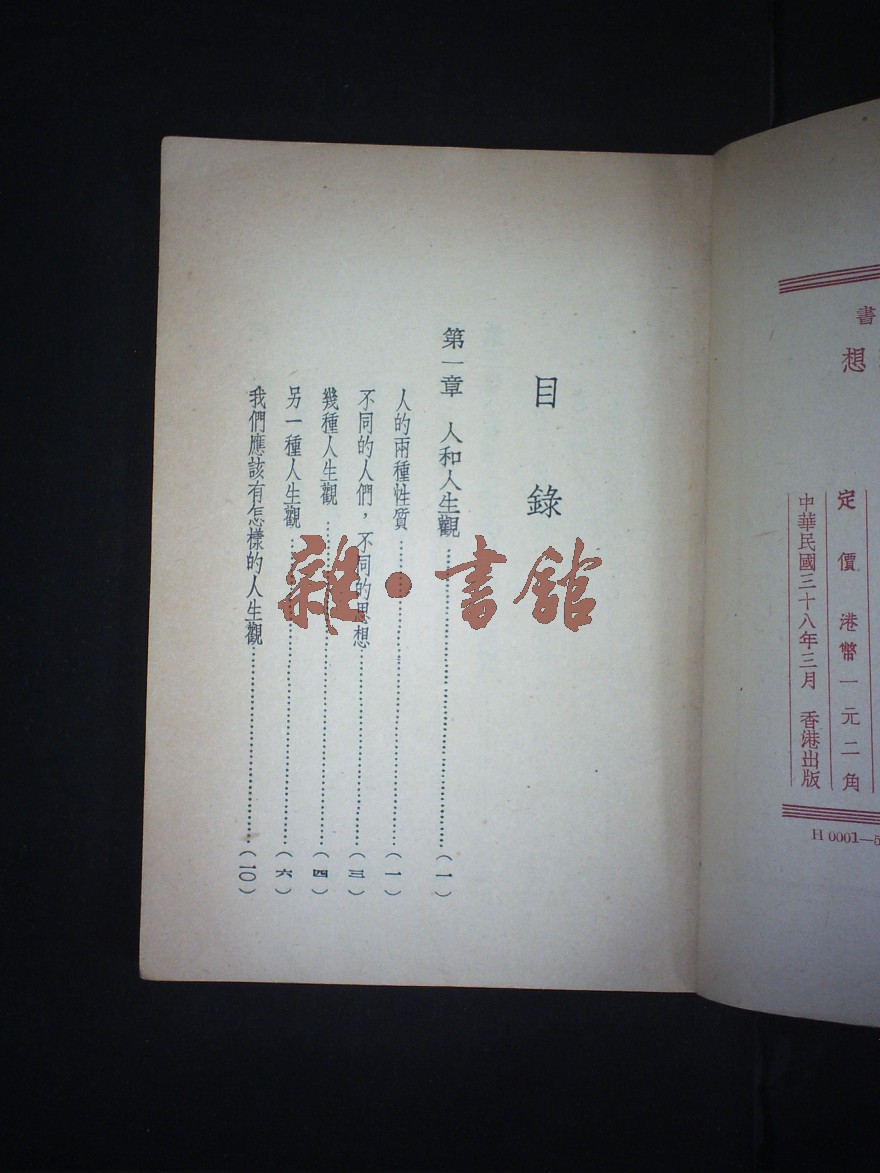 書
想
定價 港幣一元二角
中華民國三十八年三月 香港出版
H 0001—5
目錄
第一章 人和人生觀……(一)
人的兩種性質……(一)
不同的人們，不同的思想……(三)
幾種人生觀……(四)
另一種人生觀……(六)
我們應該有怎樣的人生觀……(一〇)
雜·書館